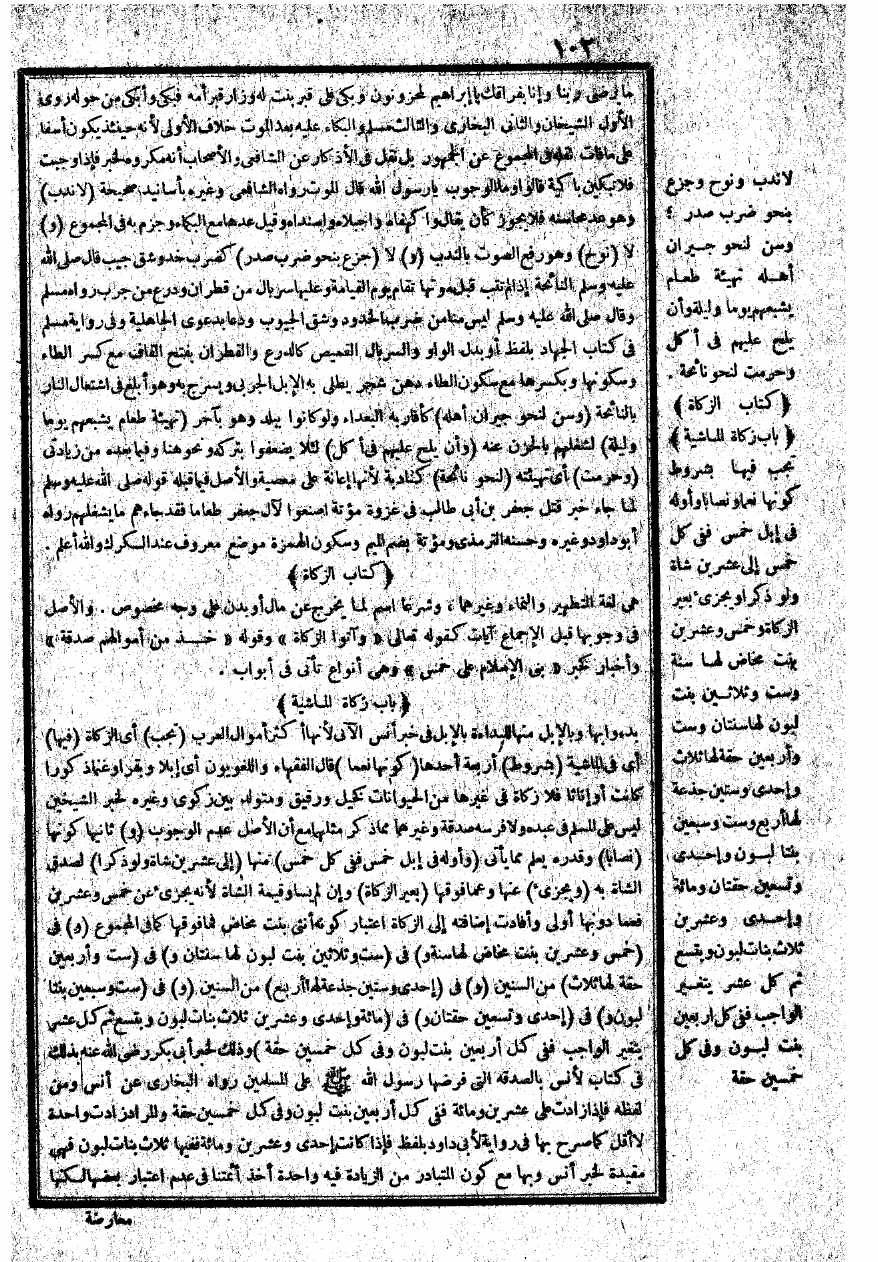 ١٠٣
ما يرضى ربنا وإنا بفراقك يا إبراهيم لمحزونون وبكى على قبر بنت له وزار قبر أمه فبكى وأبكى من حوله روى
الأول الشيخان والثانى البخارى والثالث مسلم والبكاء عليه بعد الموت خلاف الأولى لأنه حينئذ يكون أسفا
على مافات نقله فى المجموع عن الجمهور بل نقل فى الأذكار عن الشافعى والأصحاب أنه مكروه لخبر فإذا وجبت
فلا تبكين باكية قالوا وما الوجوب يا رسول الله قال الموت رواه الشافعى وغيره بأسانيد صحيحة (لا ندب)
وهو عد محاسنه فلا يجوز كأن يقال وا كهفاه وا جبلاه وا سنداه وقيل عدها مع البكاء وجزم به فى المجموع (و)
لا (نوح) وهو رفع الصوت بالندب (و) لا (جزع بنحو ضرب صدر) كضرب خد وشق جيب قال صلى الله
عليه وسلم النائحة إذا لم تتب قبل موتها تقام يوم القيامة وعليها سربال من قطران ودرع من جرب رواه مسلم
وقال صلى الله عليه وسلم ليس منا من ضرب الخدود وشق الجيوب ودعا بدعوى الجاهلية وفى رواية مسلم
فى كتاب الجهاد بلفظ أو بدل الواو والسربال القميص كالدرع والقطران بفتح القاف مع كسر الطاء
وسكونها وبكسرها مع سكون الطاء دهن شجر يطلى به الإبل الجربى ويسرج به وهو أبلغ فى اشتعال النار
بالنائحة (وسن لنحو جيران أهله) كأقاربه البعداء ولو كانوا ببلد وهو بآخر (تهيئة طعام يشبعهم يوما
وليلة) لشغلهم بالحزن عنه (وأن يلح عليهم فى أكل) لئلا يضعفوا بتركه ونحوهنا وفيما بعده من زيادتى
(وحرمت) أى تهيئته (لنحو نائحة) كنادبة لأنها إعانة على معصية والأصل فيما قبله قوله صلى الله عليه وسلم
لما جاء خبر قتل جعفر بن أبى طالب فى غزوة مؤتة اصنعوا لآل جعفر طعاما فقد جاءهم ما يشغلهم رواه
أبو داود وغيره وحسنه الترمذى ومؤتة بضم الميم وسكون الهمزة موضع معروف عند الكرك والله أعلم .
﴿ كتاب الزكاة ﴾
هى لغة التطهير والنماء وغيرهما ، وشرعا اسم لما يخرج عن مال أو بدن على وجه مخصوص . والأصل
فى وجوبها قبل الإجماع آيات كقوله تعالى « وآتوا الزكاة » وقوله « خذ من أموالهم صدقة »
وأخبار كخبر « بنى الإسلام على خمس » وهى أنواع تأتى فى أبواب .
﴿ باب زكاة الماشية ﴾
بدءوا بها وبالإبل منها للبداءة بالإبل فى خبر أنس الآتى لأنها أكثر أموال العرب (تجب) أى الزكاة (فيها)
أى فى الماشية (بشروط) أربعة أحدها (كونها نعما) قال الفقهاء واللغويون أى إبلا وبقرا وغنما ذكورا
كانت أو إناثا فلا زكاة فى غيرها من الحيوانات كخيل ورقيق ومتولد بين زكوى وغيره لخبر الشيخين
ليس على المسلم فى عبده ولا فرسه صدقة وغيرهما مما ذكر مثلهما مع أن الأصل عدم الوجوب (و) ثانيها كونها
(نصابا) وقدره يعلم مما يأتى (وأوله فى إبل خمس ففى كل خمس) منها (إلى عشرين شاة ولو ذكرا) لصدق
الشاة به (ويجزىء) عنها وعما فوقها (بعير الزكاة) وإن لم يساو قيمة الشاة لأنه يجزىء عن خمس وعشرين
فعما دونها أولى وأفادت إضافته إلى الزكاة اعتبار كونه أنثى بنت مخاض فما فوقها كما فى المجموع (و) فى
(خمس وعشرين بنت مخاض لها سنة و) فى (ست وثلاثين بنت لبون لها سنتان و) فى (ست وأربعين
حقة لها ثلاث) من السنين (و) فى (إحدى وستين جذعة لها أربع) من السنين (و) فى (ست وسبعين بنتا
لبون و) فى (إحدى وتسعين حقتان و) فى (مائة وإحدى وعشرين ثلاث بنات لبون وبتسع ثم كل عشر
يتغير الواجب ففى كل أربعين بنت لبون وفى كل خمسين حقة) وذلك لخبر أبى بكر رضى الله عنه بذلك
فى كتاب لأنس بالصدقة التى فرضها رسول الله ﷺ على المسلمين رواه البخارى عن أنس ومن
لفظه فإذا زادت على عشرين ومائة ففى كل أربعين بنت لبون وفى كل خمسين حقة والمراد زادت واحدة
لا أقل كما صرح بها فى رواية لأبى داود بلفظ فإذا كانت إحدى وعشرين ومائة ففيها ثلاث بنات لبون فهى
مقيدة لخبر أنس وبها مع كون المتبادر من الزيادة فيه واحدة أخذ أئمتنا فى عدم اعتبار بعضها لكنها
معارضة
لا ندب ونوح وجزع
بنحو ضرب صدر ؛
وسن لنحو جيران
أهله تهيئة طعام
يشبعهم يوما وليلة وأن
يلح عليهم فى أكل
وحرمت لنحو نائحة .
﴿ كتاب الزكاة ﴾
﴿ باب زكاة الماشية ﴾
تجب فيها بشروط
كونها نعما ونصابا وأوله
فى إبل خمس ففى كل
خمس إلى عشرين شاة
ولو ذكرا ويجزىء بعير
الزكاة وخمس وعشرين
بنت مخاض لها سنة
وست وثلاثين بنت
لبون لها سنتان وست
وأربعين حقة لها ثلاث
وإحدى وستين جذعة
لها أربع وست وسبعين
بنتا لبون وإحدى
وتسعين حقتان ومائة
وإحدى وعشرين
ثلاث بنات لبون وبتسع
ثم كل عشر يتغير
الواجب ففى كل أربعين
بنت لبون وفى كل
خمسين حقة